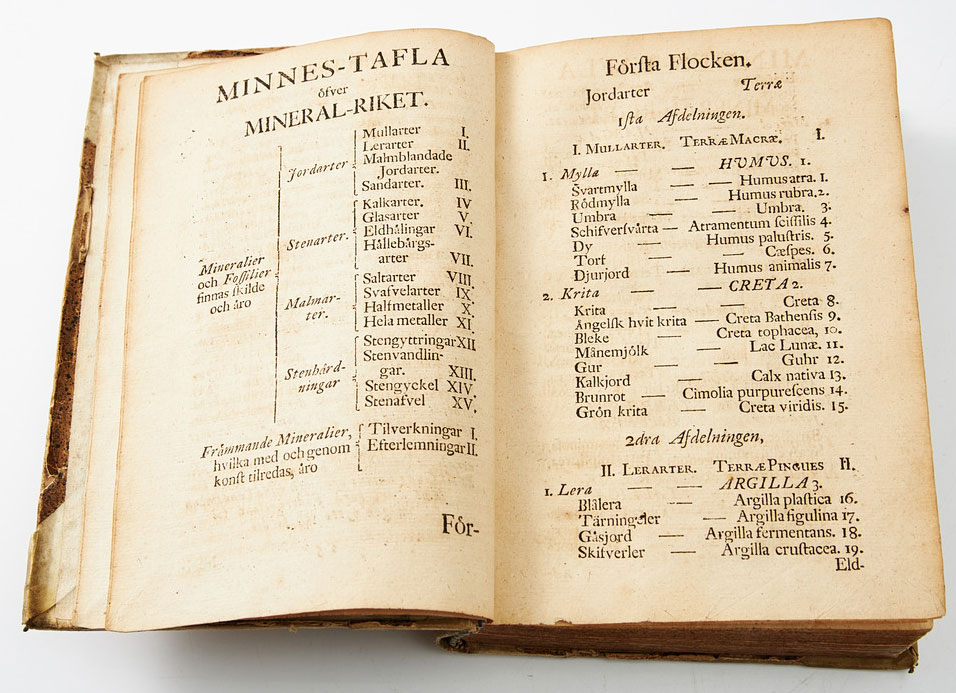 MINNES-TAFLA
öfver
MINERAL-RIKET.
Mineralier
och Foſſilier
finnas ſkilde
och äro
Jordarter
Mullarter I.
Lerarter II.
Malmblandade
Jordarter.
Sandarter. III.
Stenarter.
Kalkarter. IV
Glasarter V.
Eldhålingar VI.
Hållebärgs-
arter VII.
Malmar-
ter.
Saltarter VIII.
Svafvelarter IX.
Halfmetaller X.
Hela metaller XI.
Stenhärd-
ningar
Stengyttringar XII
Stenvandlin-
gar. XIII.
Stengyckel XIV.
Stenafvel XV.
Främmande Mineralier,
hvilka med och genom
konſt tilredas, äro
Tilverkningar I.
Efterlemningar II.
För-
Förſta Flocken.
Jordarter Terræ
1ſta Afdelningen.
I. MULLARTER. TERRÆ MACRÆ. I.
1. Mylla — — HUMUS. 1.
Svartmylla — — Humus atra. 1.
Rödmylla — Humus rubra. 2.
Umbra — — Umbra. 3.
Schifverſvärta — Atramentum ſciſſilis 4.
Dy — Humus paluſtris. 5.
Torf — — Cæſpes. 6.
Djurjord — Humus animalis 7.
2. Krita — — CRETA 2.
Krita — — Creta 8.
Ångelſk hvit krita — Creta Bathenſis 9.
Bleke — Creta tophacea, 10.
Månemjölk — Lac Lunæ. 11.
Gur — — Guhr 12.
Kalkjord — Calx nativa 13.
Brunrot — Cimolia purpureſcens 14.
Grön krita — Creta viridis. 15.
2dra Afdelningen,
II. LERARTER. TERRÆ PINGUES II.
1. Lera — — ARGILLA 3.
Blålera — Argilla plaſtica 16.
Tärningeler — Argilla figulina 17.
Gäsjord — Argilla fermentans. 18.
Skifverler — Argilla cruſtacea. 19.
Eld-